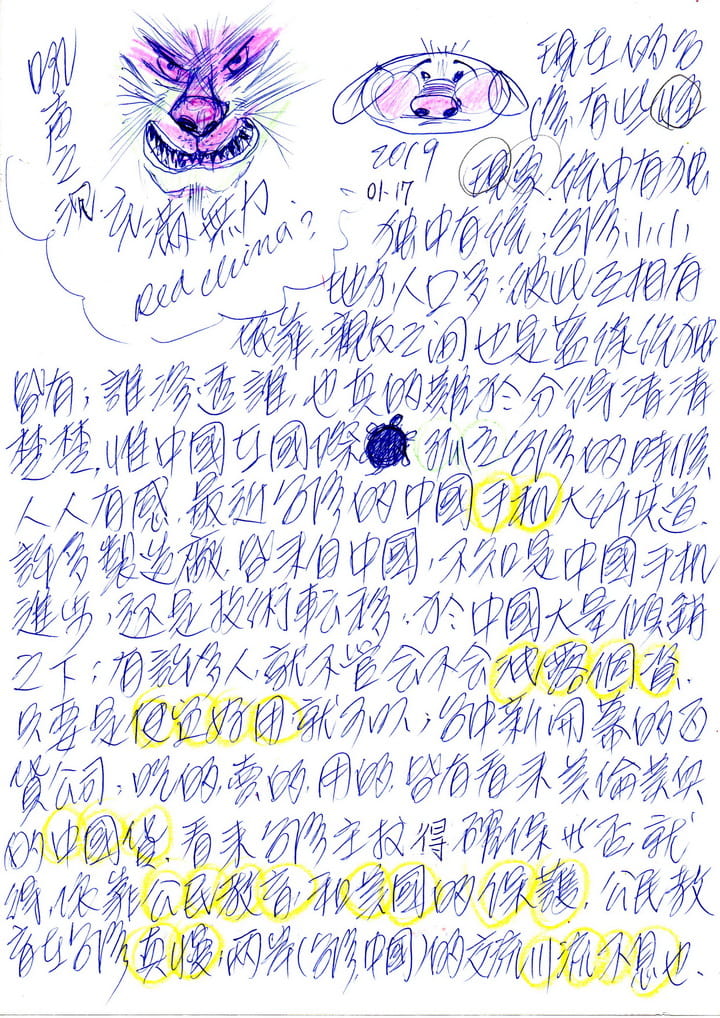 吼聲之洞，充滿無力
Red China?
2019
01-17
現在的台
灣，有些怪
現象，統中有獨
獨中有統；台灣小小
地方，人口多；彼此互相有
依靠，親友之间也是蓝綠統獨
皆有；誰滲透誰，也真的難於分得清清
楚楚，惟中國在國際孤立台灣的時候，
人人有感，最近台灣的中國手机大行其道，
許多製造廠，皆來自中國，不知是中國手机
進步，還是技術転移，於中國大量傾銷
之下；有許多人，就不管会不会洩露個資，
只要是便宜好用，就可以；台中新開幕的百
貨公司，吃的，賣的，用的，皆有看來美倫美奐
的中國貨，看來台灣主权得確保与否，就
得依靠公民教育，和美國的保護，公民教
育在台灣真慢，兩岸(台灣，中國)的交流川流不息也.